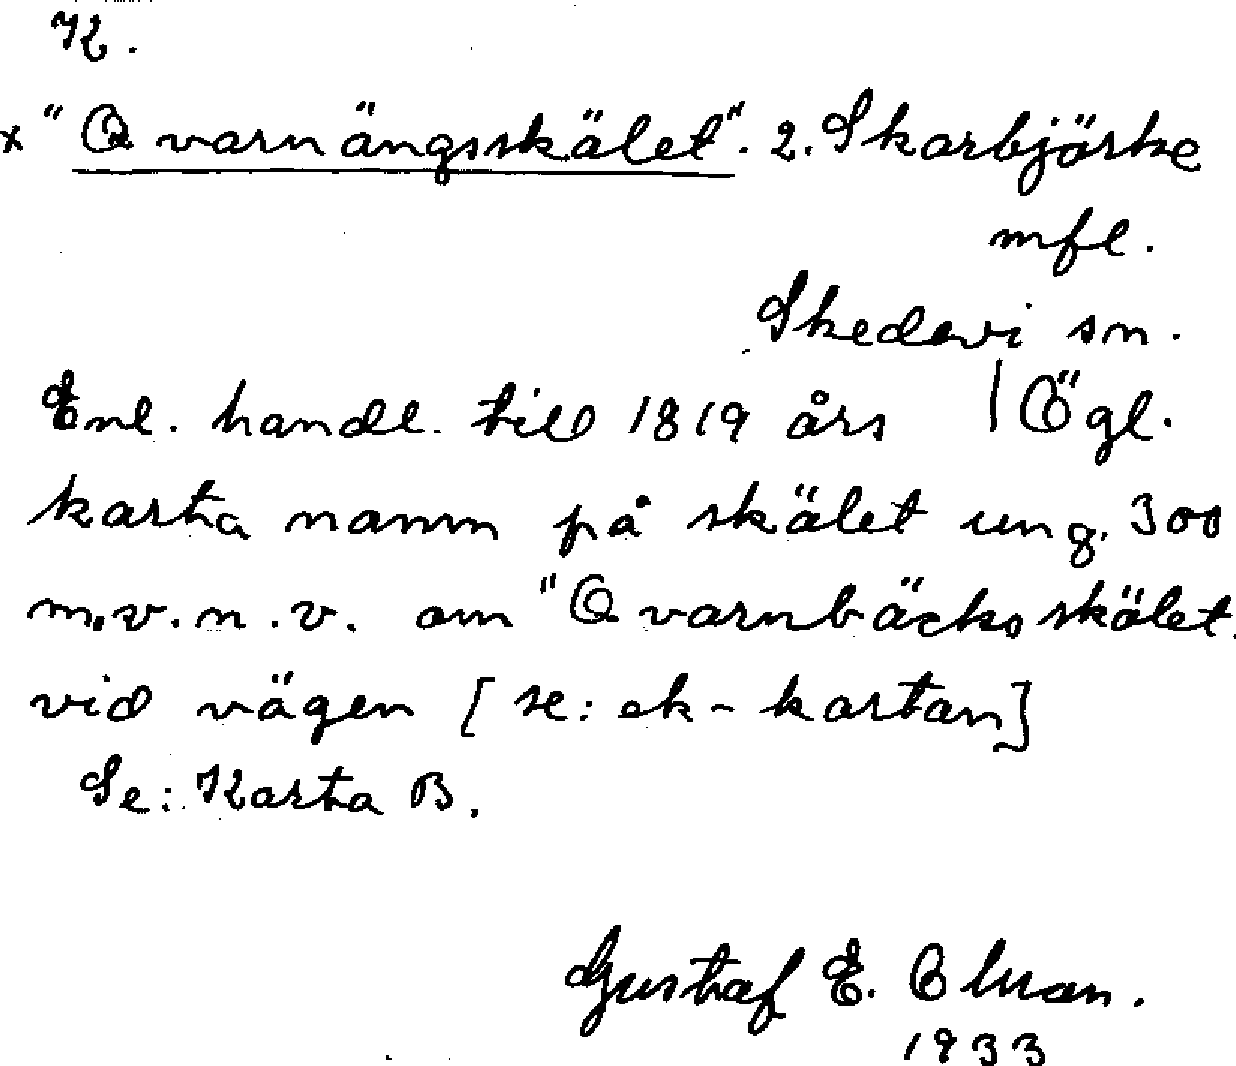 K.
x "Qvarnängsskälet". 2. Skarbjörke
mfl.
Skedevi sn.
Enl. handl. till 1819 års | Ögl.
karta namn på skälet ung. 300
m.v.n.v. om "Qvarnbäcksskälet
vid vägen [se: ek-kartan]
Se: Karta B.
Gustaf E.
1933